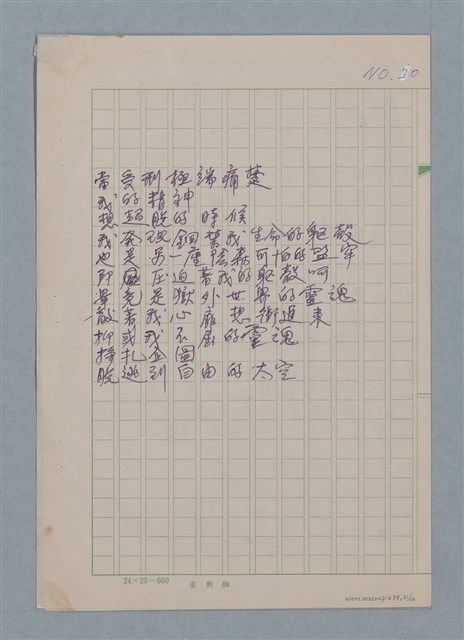 NO. 20
當受刑極端痛楚
我的精神
想超脫的時候
我發現錮禁我生命的軀殼
也是另一座陰森可怕的監牢
即 壓迫著我的軀殼呵
畢竟是獄外世界的靈魂
敲著我心扉想衝進來
抑或我不屈的靈魂
掙扎企圖
脫逃到自由的太空
24×25=600 東興牌